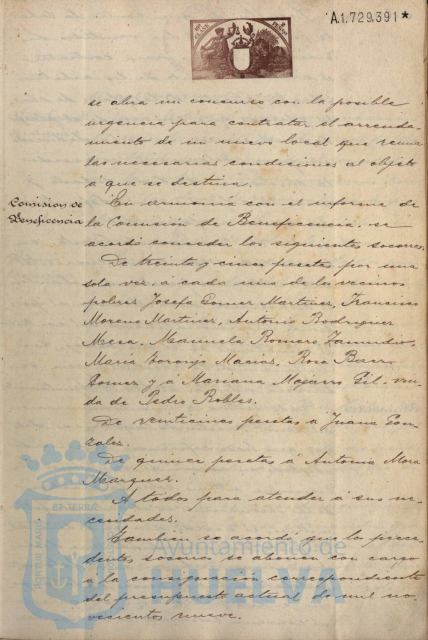 A.1.729.391*
se abra un concurso con la posible
urgencia para contratar el arrenda-
miento de un nuevo local que reuna
las necesarias condiciones al objeto
á que se destina.
Comision de
Beneficencia
En armonia con el informe de
la Comisión de Beneficencia, se
acordó conceder los siguientes socorros.
De treinta y cinco pesetas por una
sola vez, á cada uno de los vecinos
pobres Josefa Gomez Martinez, Francisco
Moreno Martinez, Antonio Rodriguez
Mesa, Manuela Romero Zamudio,
Maria Naranjo Macias, Rosa
Gomez y á Mariana Mojarro Gil, viu-
da de Pedro Robles.
De veinticinco pesetas á Juana Gon-
zalez.
De quince pesetas á Antonia Mora
Marquez.
A todos para atender á sus ne-
cesidades.
Tambien se acordó que los prece-
dentes socorros se abonen con cargo
á la consignación correspondiente
del presupuesto actual de mil no-
vecientos nueve.
Ayuntamiento de
HUELVA